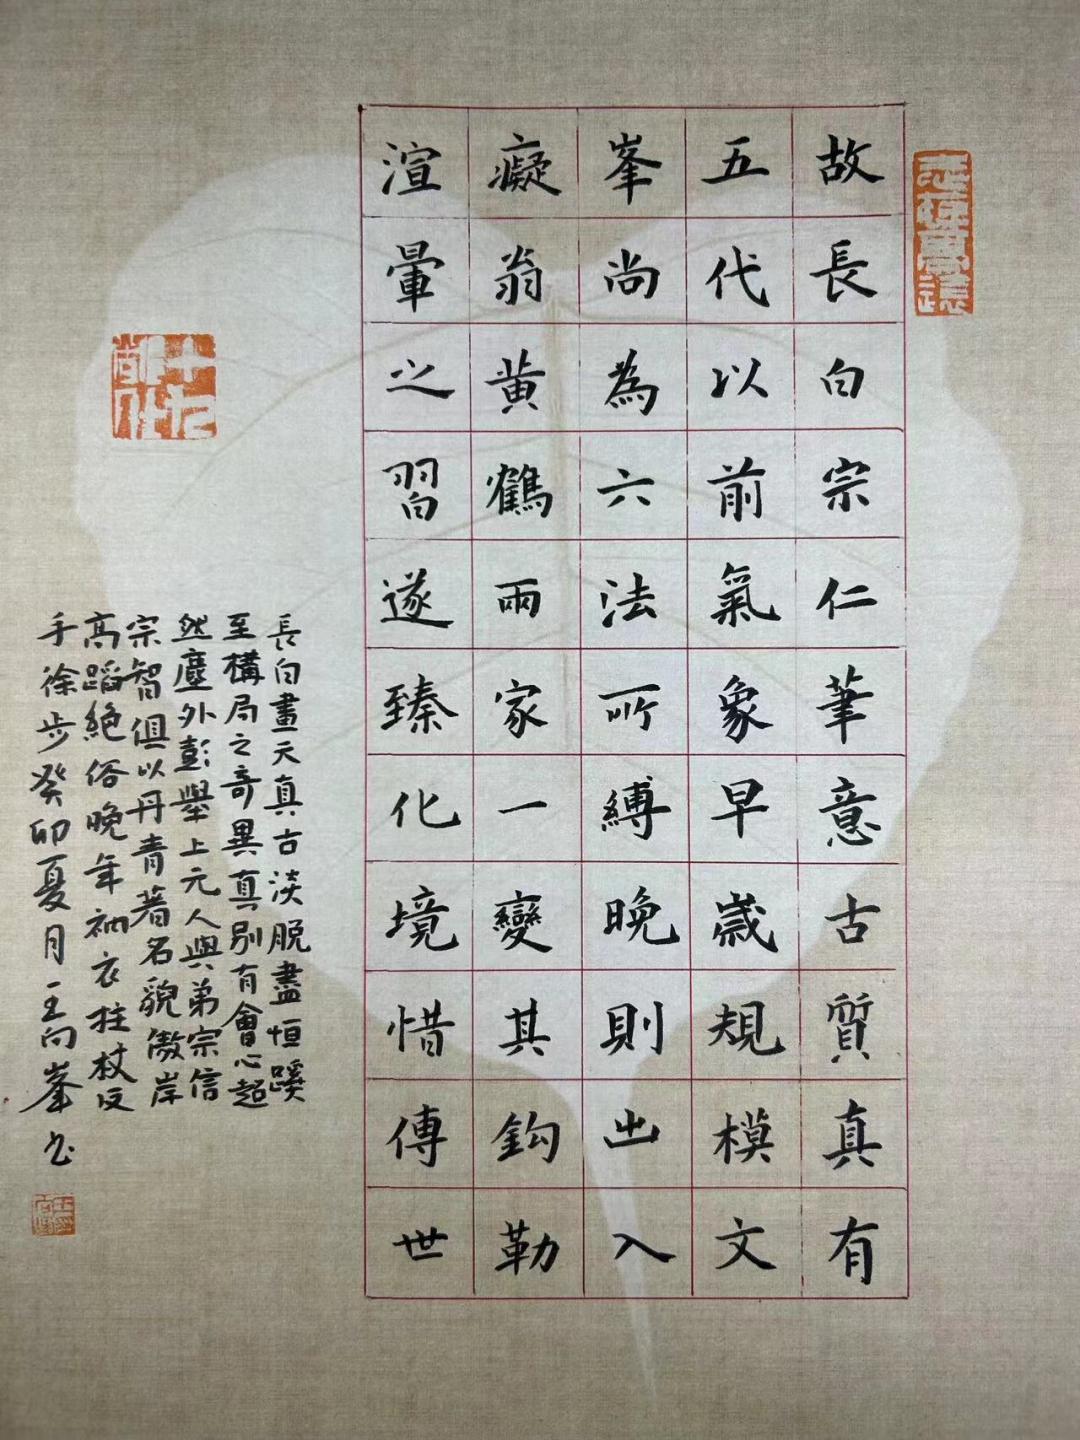 故長白宗仁筆意古質真有
五代以前氣象早歲規模文
峯尚為六法所縛晚則出入
癡翁黄鶴兩家一變其鈎勒
渲暈之習遂臻化境惜傳世
長白畫天真古淡脫盡恒蹊
至構局之奇異真別有會心超
然塵外彭舉上元人與弟宗信
宗智俱以丹青著名貌傲岸
高蹈絕俗晚年衲衣拄杖反
手徐步癸卯夏月王向峯書